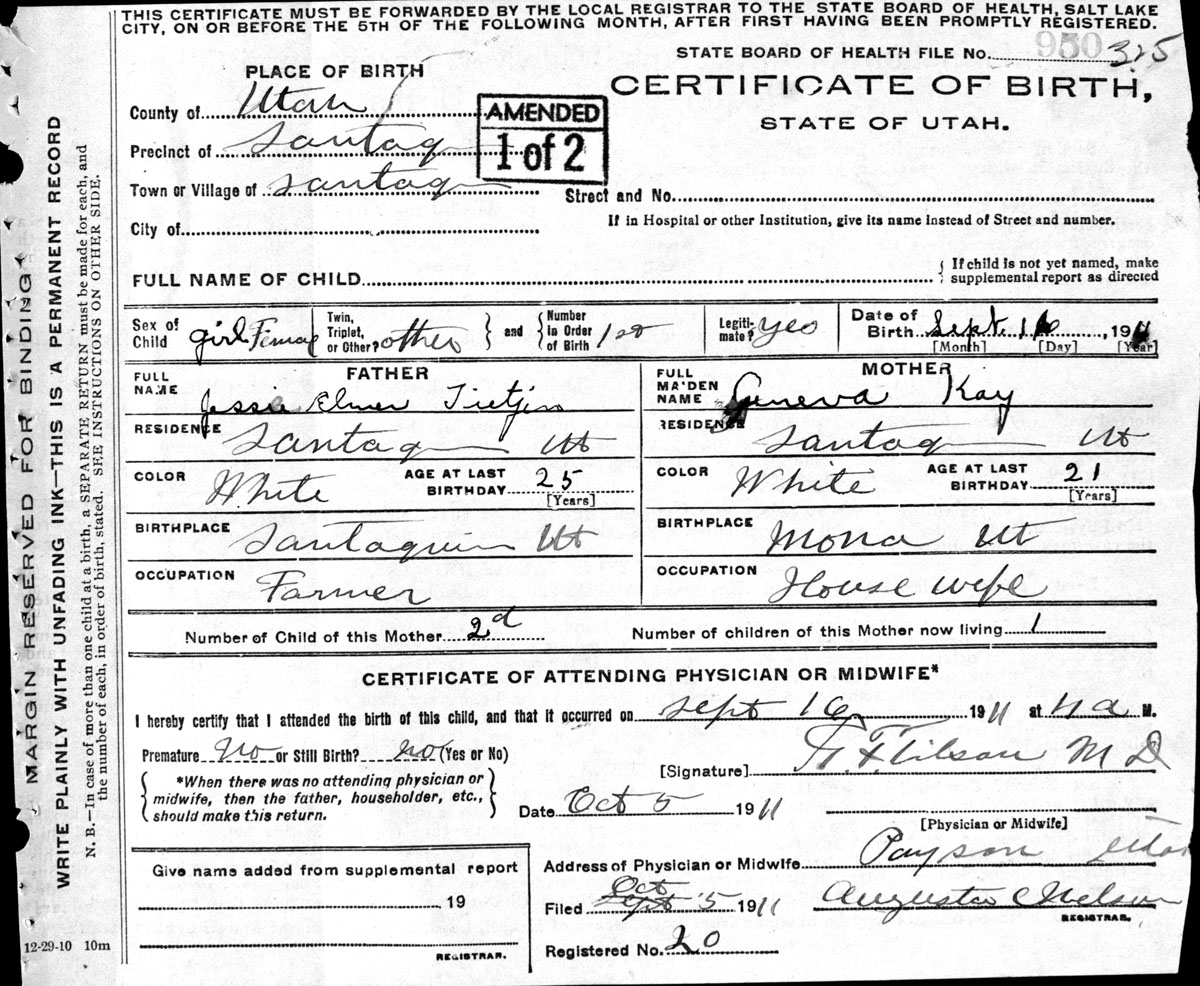 THIS CERTIFICATE MUST BE FORWARDED BY THE LOCAL REGISTRAR TO THE STATE BOARD OF HEALTH, SALT LAKE
CITY, ON OR BEFORE THE 5TH OF THE FOLLOWING MONTH, AFTER FIRST HAVING BEEN PROMPTLY REGISTERED.
950
STATE BOARD OF HEALTH FILE No. 325
PLACE OF BIRTH
CERTIFICATE OF BIRTH,
STATE OF UTAH.
County of Utah
AMENDED
1 of 2
Precinct of Santaq
Town or Village of Santaq
Street and No.
City of
If in Hospital or other Institution, give its name instead of Street and number.
FULL NAME OF CHILD
{ If child is not yet named, make
supplemental report as directed
Sex of Child girl Female
Twin, Triplet, or Other? other } and { Number in Order of Birth 1st
Legitimate? yes
Date of Birth Sept. 16, 1911
[Month] [Day] [Year]
FATHER
MOTHER
FULL NAME Jessie Elmer Tietjen
FULL MAIDEN NAME Geneva Kay
RESIDENCE Santaq Ut
RESIDENCE Santaq Ut
COLOR White AGE AT LAST BIRTHDAY 25 [Years]
COLOR White AGE AT LAST BIRTHDAY 21 [Years]
BIRTHPLACE Santaquin Ut
BIRTHPLACE Mona Ut
OCCUPATION Farmer
OCCUPATION House wife
Number of Child of this Mother 2d
Number of children of this Mother now living 1
CERTIFICATE OF ATTENDING PHYSICIAN OR MIDWIFE*
I hereby certify that I attended the birth of this child, and that it occurred on Sept 16 1911 at 4 a M.
Premature No or Still Birth? No (Yes or No)
[Signature] M D
{ *When there was no attending physician or
midwife, then the father, householder, etc.,
should make this return. }
Date Oct 5 1911
[Physician or Midwife]
Address of Physician or Midwife Payson Utah
Give name added from supplemental report
19
REGISTRAR.
Oct
Filed Sept 5 1911
Augusta Nelson
REGISTRAR.
Registered No. 20
12-29-10 10m
MARGIN RESERVED FOR BINDING
WRITE PLAINLY WITH UNFADING INK—THIS IS A PERMANENT RECORD
N. B.—In case of more than one child at a birth, a SEPARATE RETURN must be made for each, and
the number of each, in order of birth, stated. SEE INSTRUCTIONS ON OTHER SIDE.